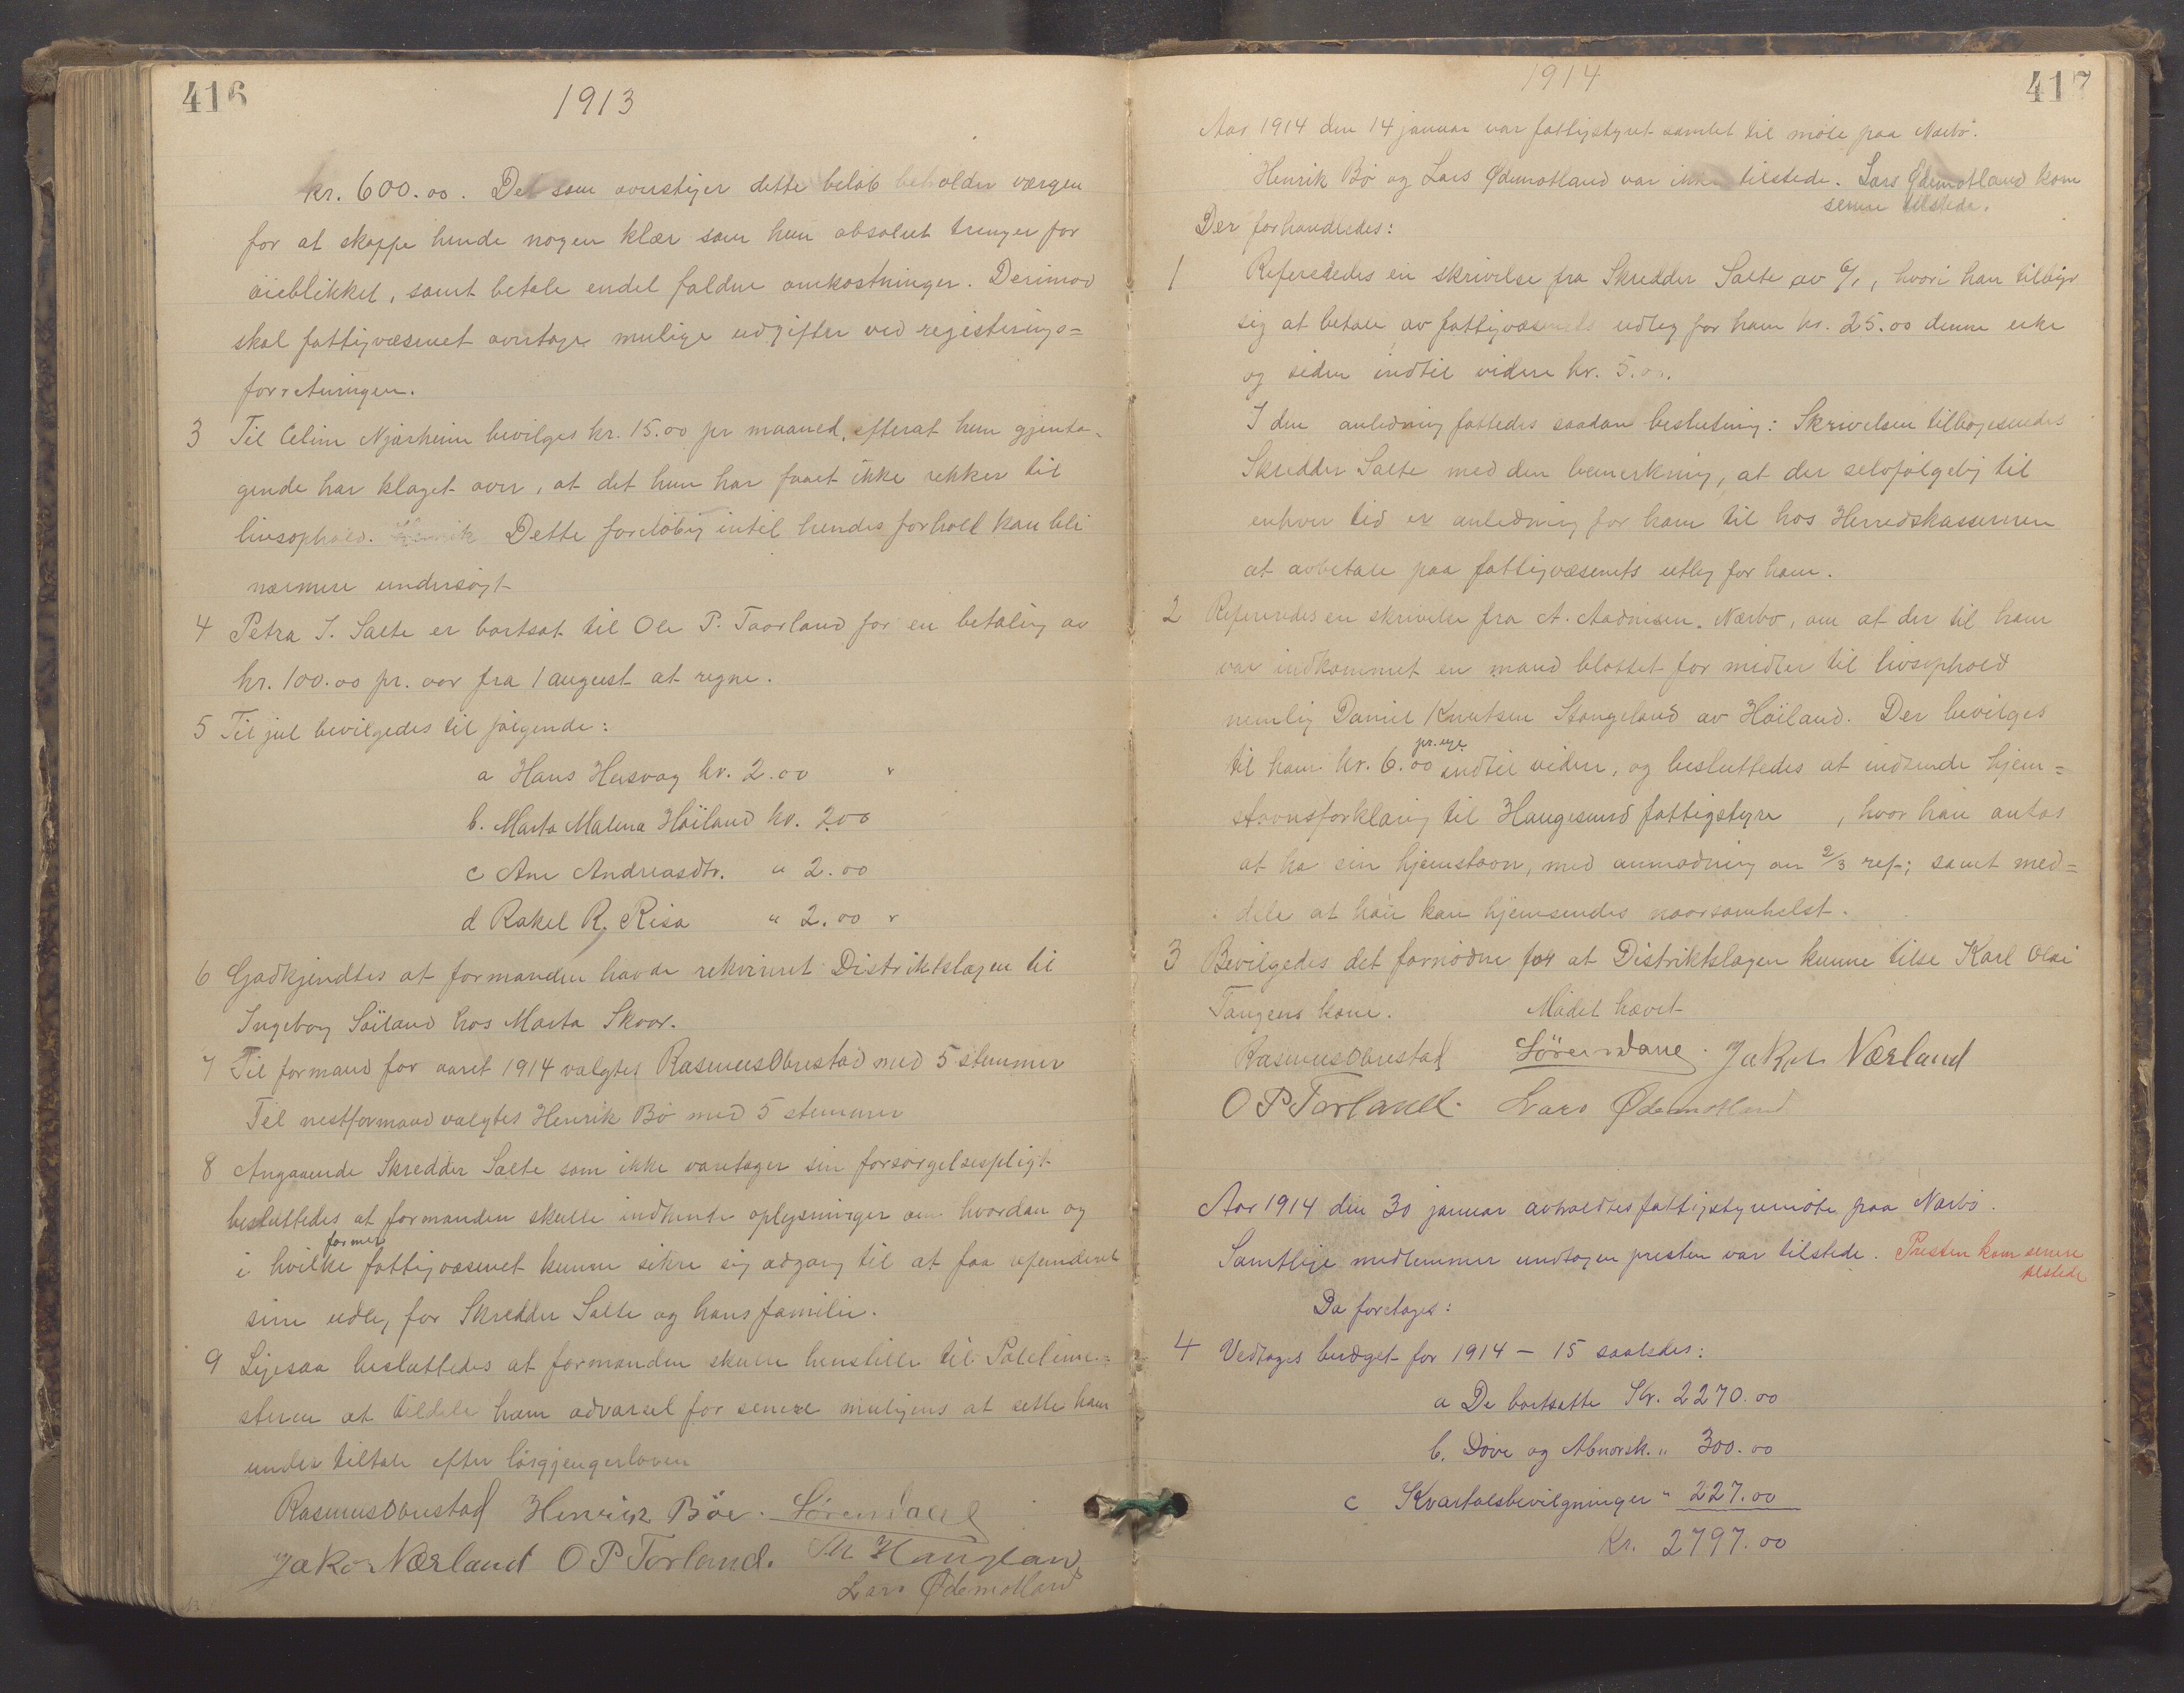 416
1913
kr. 600.00. Det som overstiger dette beløb beholder værgen
for at skaffe hende nogen klær som hun absolut trenger for
øieblikket, samt betale endel faldne omkostninger. Derimod
skal fattigvæsenet overtage mulige udgifter ved registerings=
forretningen.
3 Til Celine Njærheim bevilges kr. 15.00 pr maaned, efterat hun gjenta-
gende har klaget over, at det hun har faaet ikke rekker til
livsophold. Dette foreløbig intil hendes forhold kan bli
nærmere undersøgt
4 Petra S. Salte er bortsat til Ole P. Taarland for en betaling av
kr. 100.00 pr. aar fra 1 august at regne.
5 Til jul bevilgedes til følgende:
a Hans Husvag kr. 2.00
b. Marta Malena Høiland kr. 2.00
c Ane Andreasdtr. " 2.00
d Rakel R. Risa " 2.00
6 Godkjendtes at formanden havde rekvireret Distriktslægen til
Ingeborg Søiland hos Marta Skaar.
7 Til formand for aaret 1914 valgtes Rasmus Obrestad med 5 stemmer
Til nestformand valgtes Henrik Bø med 5 stemmer
8 Angaaende Skredder Salte som ikke varetager sin forsørgelsespligt
besluttedes at formanden skulle indhente oplysninger om hvordan og
former
i hvilke fattigvæsenet kunne sikre sig adgang til at faa refunderet
sine udlæg for Skredder Salte og hans familie.
9 Ligesaa besluttedes at formanden skulde henstille til Politime=
steren at tildele ham advarsel for senere muligens at sette ham
under tiltale efter løsgjengerloven
Rasmus Obrestad Henrik Böe. Sören Dane
Jakob Nærland O P Torland. Th Haugland
Lars Ødemotland
417
1914
Aar 1914 den 14 januar var fattigstyret samlet til møte paa Nærbø.
Henrik Bø og Lars Ødemotland var ikke tilstede. Lars Ødemotland kom
senere tilstede.
Der forhandledes:
1 Refereredes en skrivelse fra Skredder Salte av 6/1, hvori han tilbyr
sig at betale av fattigvæsenets udlæg for ham kr. 25.00 denne uke
og siden indtil videre kr. 5.00.
I den anledning fattedes saadan beslutning: Skrivelsen tilbagesendes
Skredder Salte med den bemerkning, at der selvfølgelig til
enhver tid er anledning for ham til hos Herredskassereren
at avbetale paa fattigvæsenets utlæg for ham.
2 Refereredes en skrivelse fra A. Aadnesen, Nærbø, om at der til ham
var indkommet en mand blottet for midler til livsophold
nemlig Daniel Knutsen Stangeland av Høiland. Der bevilges
pr. uge
til ham kr. 6.00 indtil videre, og besluttedes at indsende hjem=
stavnsforklaring til Haugesund fattigstyre , hvor han antas
at ha sin hjemstavn, med anmodning om 2/3 ref; samt med=
dele at han kan hjemsendes naarsomhelst.
3 Bevilgedes det fornødne for at Distriktslægen kunne tilse Karl Olai
Tangens kone. Mødet hævet
Rasmus Obrestad Sören Dane. Jakob Nærland
O P Torland. Lars Ødemotland
Aar 1914 den 30 januar avholdtes fattigstyremøte paa Nærbø.
Samtlige medlemmer undtagen presten var tilstede. Presten kom senere
tilstede
Da foretages:
4 Vedtages budget for 1914 - 15 saaledes:
a De bortsatte Kr. 2270.00
b. Døve og Abnorsk. " 300.00
c Kvartalsbevilgninger " 227.00
Kr. 2797.00